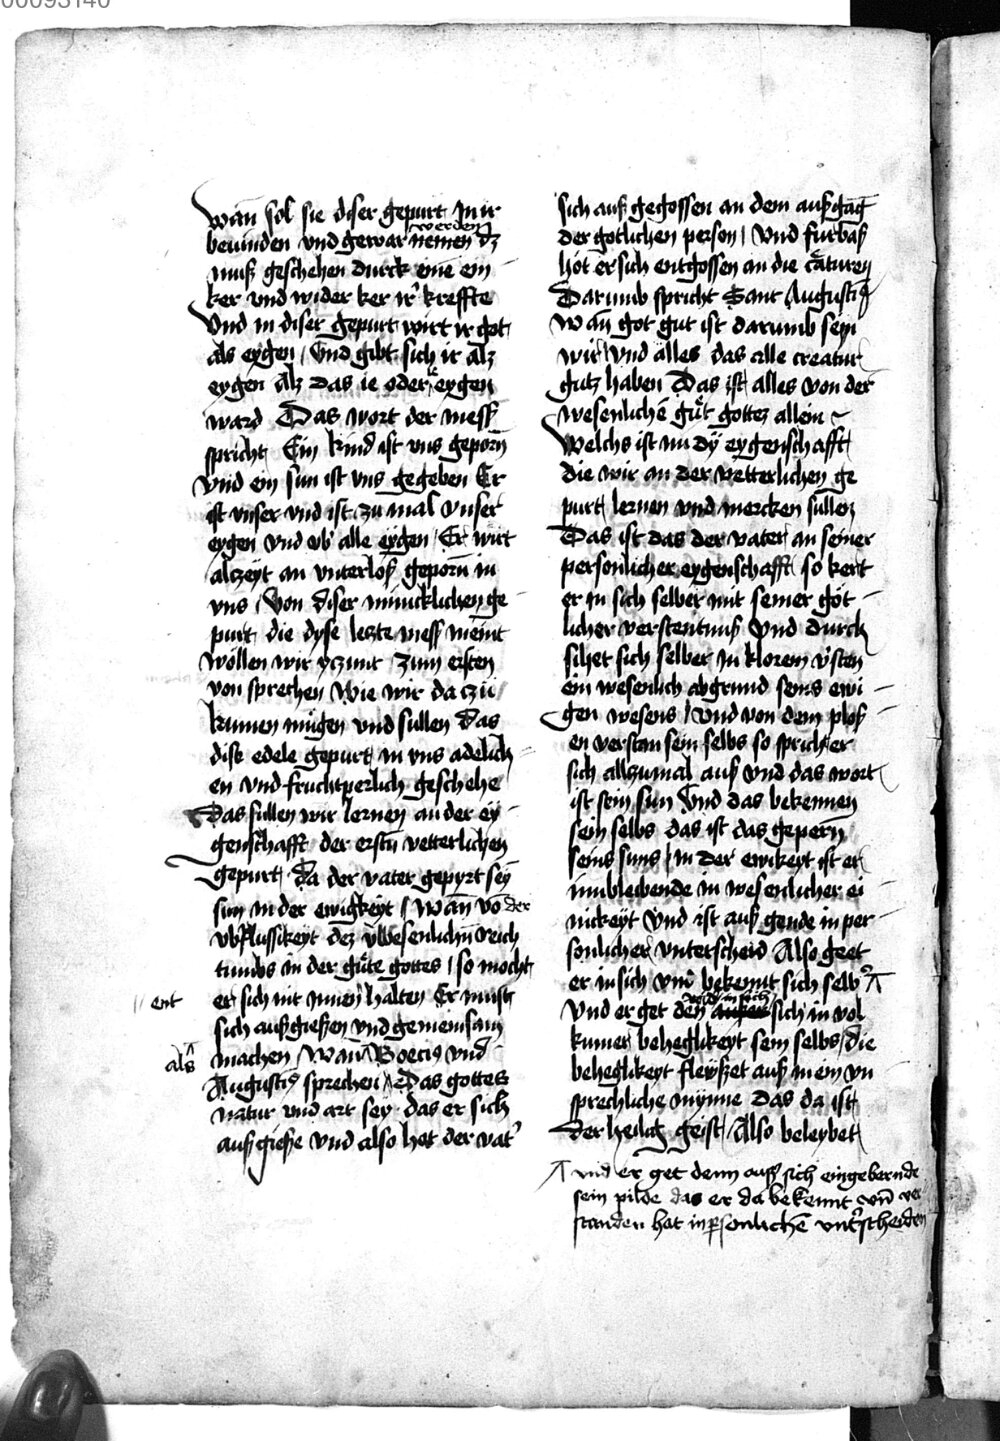 00093140
wan̄ sol sie diser gepurt In ir
werden
bevinden vnd gewar nemen dz
muß geschehen durck eine ein
ker vnd wider ker ir' kreffte
Vnd in diser gepurt wirt ir got
als eygen / Vnd gibt sich ir alz
eygen Alz das ie oder ie eygen
ward Das wort der mess
spricht Ein kind ist vns geporn̄
vnd ein sun ist vns gegeben Er
ist vnser vnd ist zu mal vnser
eygen vnd vb' alle eygen / Er wirt
alczeyt an vnterloß geporn̄ in
vns / Von diser minnicklichen ge
purt die dyse leczte mess meint
wöllen wir yczunt zum ersten
von sprechen Wie wir da czü
kumen mügen vnd süllen das
dise edele gepurt in vns adelich
en vnd fruchtperlich geschehe
Das süllen wir lernen an der ey
genschafft der ersten vetterlichen
gepurt da der vater gepyrt sey
sun in der ewigkeyt / wan̄ vō der
vbflussikeyt dez vbwesenlichn̄ reich
tumbs in der güte gottes / so mocht
ent
er sich nit innen halten Er must
sich außgießen vnd gemeinsam
machen wan̄ Boeciꝰ vnd
als
Augustiꝰ sprechen Das gottes
natur vnd art sey das er sich
außgieße vnd also hat der vat'
sich auß gegossen an dem außgāg
der gotlichen person / Vnd furbaß
hot er sich entgossen an die c̄aturen
Darumb spricht Sant Augustiꝰ
wan̄ got gut ist darumb sein
wir / vnd alles das alle creatur
gutz haben Das ist alles von der
wesenlichē güt gottez allein
Welchs ist nu dÿ eygenschafft
die wir an der vetterlichen ge
purt lernen vnd mercken süllen
Das ist das der vater an seiner
personlicher eygenschafft so kert
er in sich selber mit seiner göt
licher verstentnuß Vnd durch
sihet sich selber in klorem v'sten
ein wesenlich abgrund seins ewi
gen wesens / Vnd von dem ploß
en verstan sein selbs so spricht er
sich allzumal auß Vnd das wort
ist sein sun Vnd das bekennen
sein selbs das ist das gepern̄
seins suns / in der ewikeyt ist er
innbleibende in wesenlicher ei
nickeyt Vnd ist auß gende in per
sonlicher vnterscheid Also geet
er in sich vnd̄ bekennt sich selb'
wid' in sich
Vnd er get den̄ außer sich in vol
kumer beheglikeyt sein selbs / die
beheglikeyt fleußet auß in ein vn
sprechliche mynne Das da ist
Der heilig geist / Also beleybet
vnd er get denn auß sich eingebernde
sein pilde das er da bekennt vn̄ ver
standen hat in p̱sonlichē vnt'scheiden